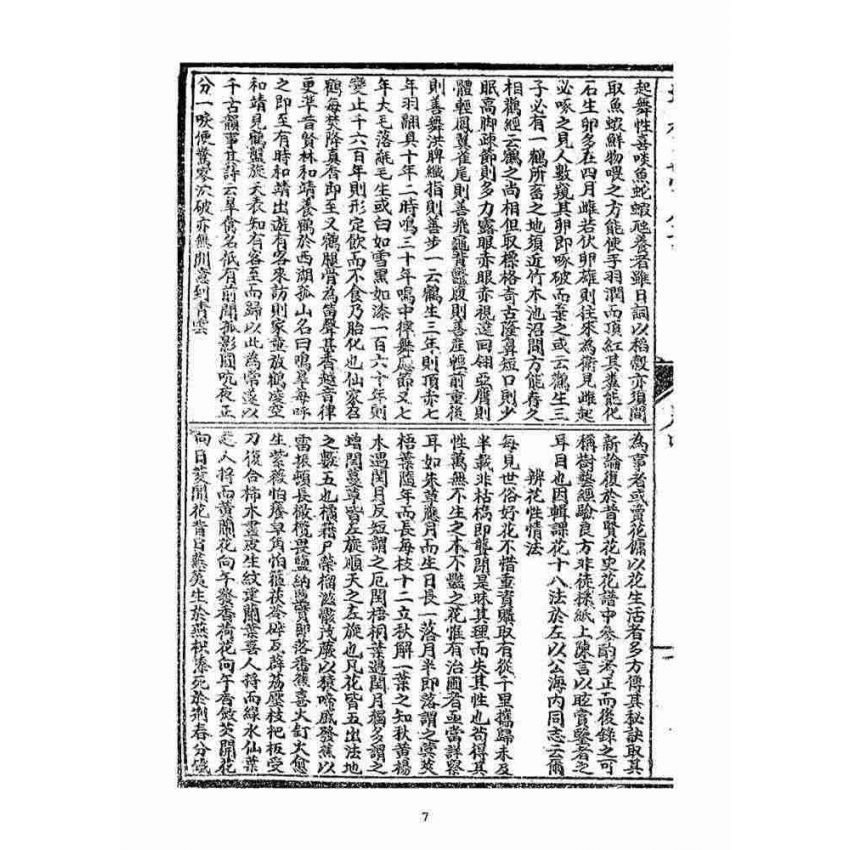 起舞性喜啖魚蛇蝦虺養者雖日詞以稻穀亦須間
取魚蝦鮮物喂之方能使毛羽潤而頂紅其糞能化
石生卵多在四月雌若伏卵雄則往來為衛見雌起
必啄之見人數窺其卵即啄破而棄之或云鶴生三
子必有一鸛所畜之地須近竹木池沼間方能存久
相鶴經云鶴之尚相但取標格奇古隆鼻短口則少
眠高脚疎節則多力露眼赤眼視遠回翎亞膺則
體輕鳳翼雀尾則善飛龜背鱉腹則善產輕前重後
則善舞洪脾纖指則善步一云鶴生三年則頂赤七
年羽翮具十年二時鳴三十年鳴中律舞應節又七
年大毛落氄毛生或白如雪黑如漆一百六十年則
變止千六百年則形定飲而不食乃胎化也仙家召
鶴每焚降真香即至又鶴腿骨為笛聲甚清越音律
更準昔賢林和靖養鶴於西湖孤山名曰鳴皋每呼
之即至有時和靖出遊有客來訪則家童放鶴凌空
和靖見鶴盤旋天表知有客至而歸以此為常遂以
千古韻事其詩云皋禽名祇有前聞孤影圓吭夜正
分一唳便驚寥泬破亦無閒意到青雲
為事者或賣花傭以花生活者多方傳其秘訣取其
新論復於昔賢花史花譜中參酌考正而後錄之可
稱樹藝經驗良方非徒採紙上陳言以眩賞鑒者之
耳目也因輯課花十八法於左以公海內同志云爾
辨花性情法
每見世俗好花不惜重資購取有從千里攜歸未及
半載非枯槁即蕪閉是昧其理而失其性也苟得其
性萬無不生之木不豔之花惟有治圃者亟當詳察
耳如朱草應月而生日長一落月半即落謂之蓂莢
梧葉隨年而長每枝十二立秋解一葉之知秋黃楊
木遇閏月反短謂之厄閏梧桐葉遇閏月獨多謂之
增閏蔓草皆左旋順天之左旋也凡花皆五出法地
之數五也橘藉尸榮榴滋骸茂蘼以猿啼盛發蕉以
雷振頓長橄欖畏鹽納實即落番蕉喜火釘火愈
生紫薇怕癢皋角怕箍茯苓碎瓦薜荔壓枝枇杷受
刀復合柿木盡皮生紋建蘭葉喜人捋而綠水仙葉
近人捋而黃蘭花向午發香荷花向午香斂芡開花
向日菱開花背日燕莢生於燕棘榛死於荊春分
7